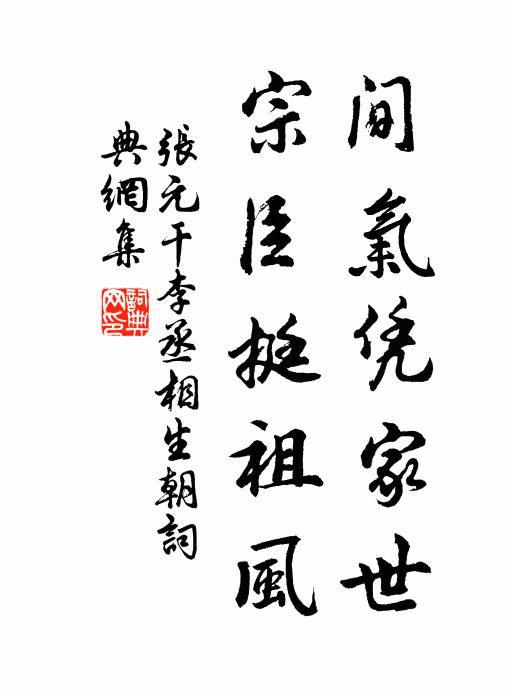 間氣凭家世
宗臣挺祖風
張元干李丞相生朝詞
典網集
詞典
网印